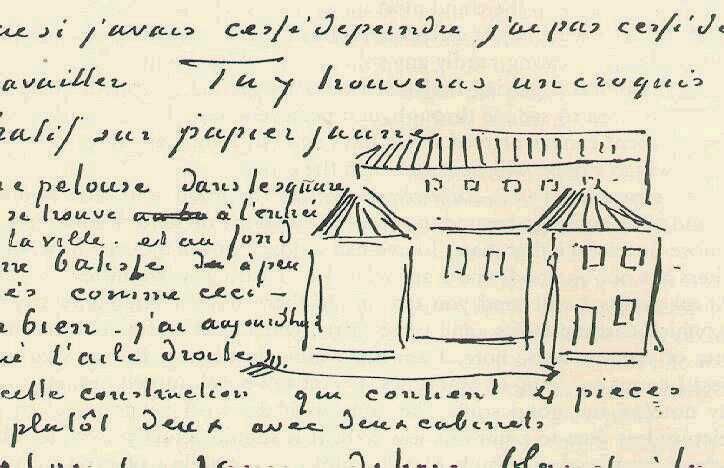 ue si j'avais cessé de peindre j'ai pas cessé de
availler Tu y trouveras un croquis
hatif sur papier jaune
ne pelouse dans le square
se trouve à l'entrée
la ville. et au fond
ne batisse de à peu
ès comme ceci
bien - j'ai aujourd'hui
ué l'aile droite
cette construction qui contient 4 pièces
plutôt deux avec deux cabinets